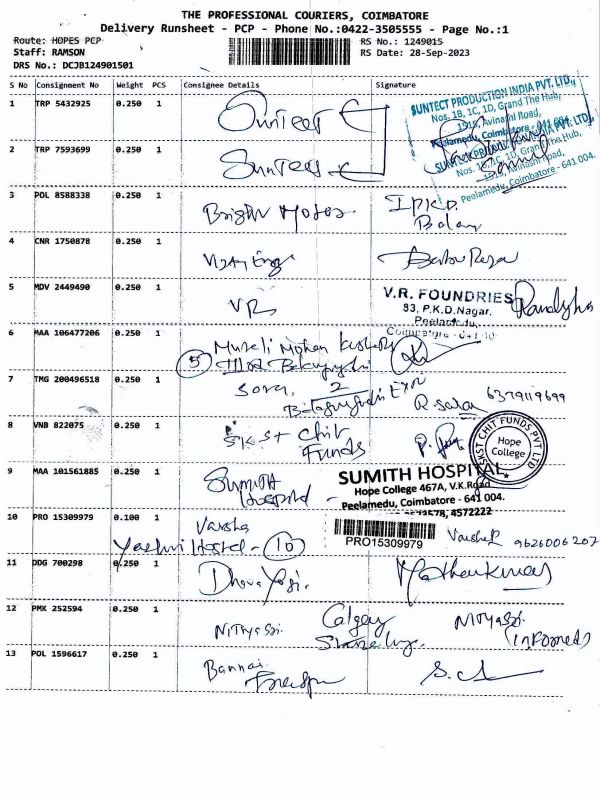 THE PROFESSIONAL COURIERS, COIMBATORE
Delivery Runsheet - PCP - Phone No.:0422-3505555 - Page No.:1
Route: HOPES PCP
RS No.: 1249015
Staff: RAMSON
RS Date: 28-Sep-2023
DRS No.: DCJB124901501
S No Consignment No Weight PCS Consignee Details Signature
1 TRP 5432925 0.250 1 Suntect
SUNTECT PRODUCTION INDIA PVT. LTD.,
Nos. 1B, 1C, 1D, Grand The Hub,
1515, Avinashi Road,
Peelamedu, Coimbatore - 641 004.
2 TRP 7593699 0.250 1 Suntect
SUNTECT PRODUCTION INDIA PVT. LTD.,
Nos. 1B, 1C, 1D, Grand The Hub,
1515, Avinashi Road,
Peelamedu, Coimbatore - 641 004.
3 POL 8588338 0.250 1 Bright
4 CNR 1750878 0.250 1 Vijay Eng
5 MDV 2449490 0.250 1 VR
V.R. FOUNDRIES
83, P.K.D.Nagar.
Peelamedu,
6 MAA 106477206 0.250 1 Murali Mohan
5
7 TMG 200496518 0.250 1 2
R 6379119699
8 VNB 822075 0.250 1 SKST Chit Funds
SKST CHIT FUNDS PVT LTD
Hope College
9 MAA 101561885 0.250 1 Sumith Hospital -
SUMITH HOSPITAL
Hope College 467A, V.K.Road
Peelamedu, Coimbatore - 641 004.
4572222
10 PRO 15309979 0.100 1 Varsha
Hostel - 10
PRO15309979
Varsha R 9626006207
11 DDG 700298 0.250 1 Dhana
12 PMK 252594 0.250 1 Nithyasri. Calgary
Nithyasri
(informed)
13 POL 1596617 0.250 1 Bannari